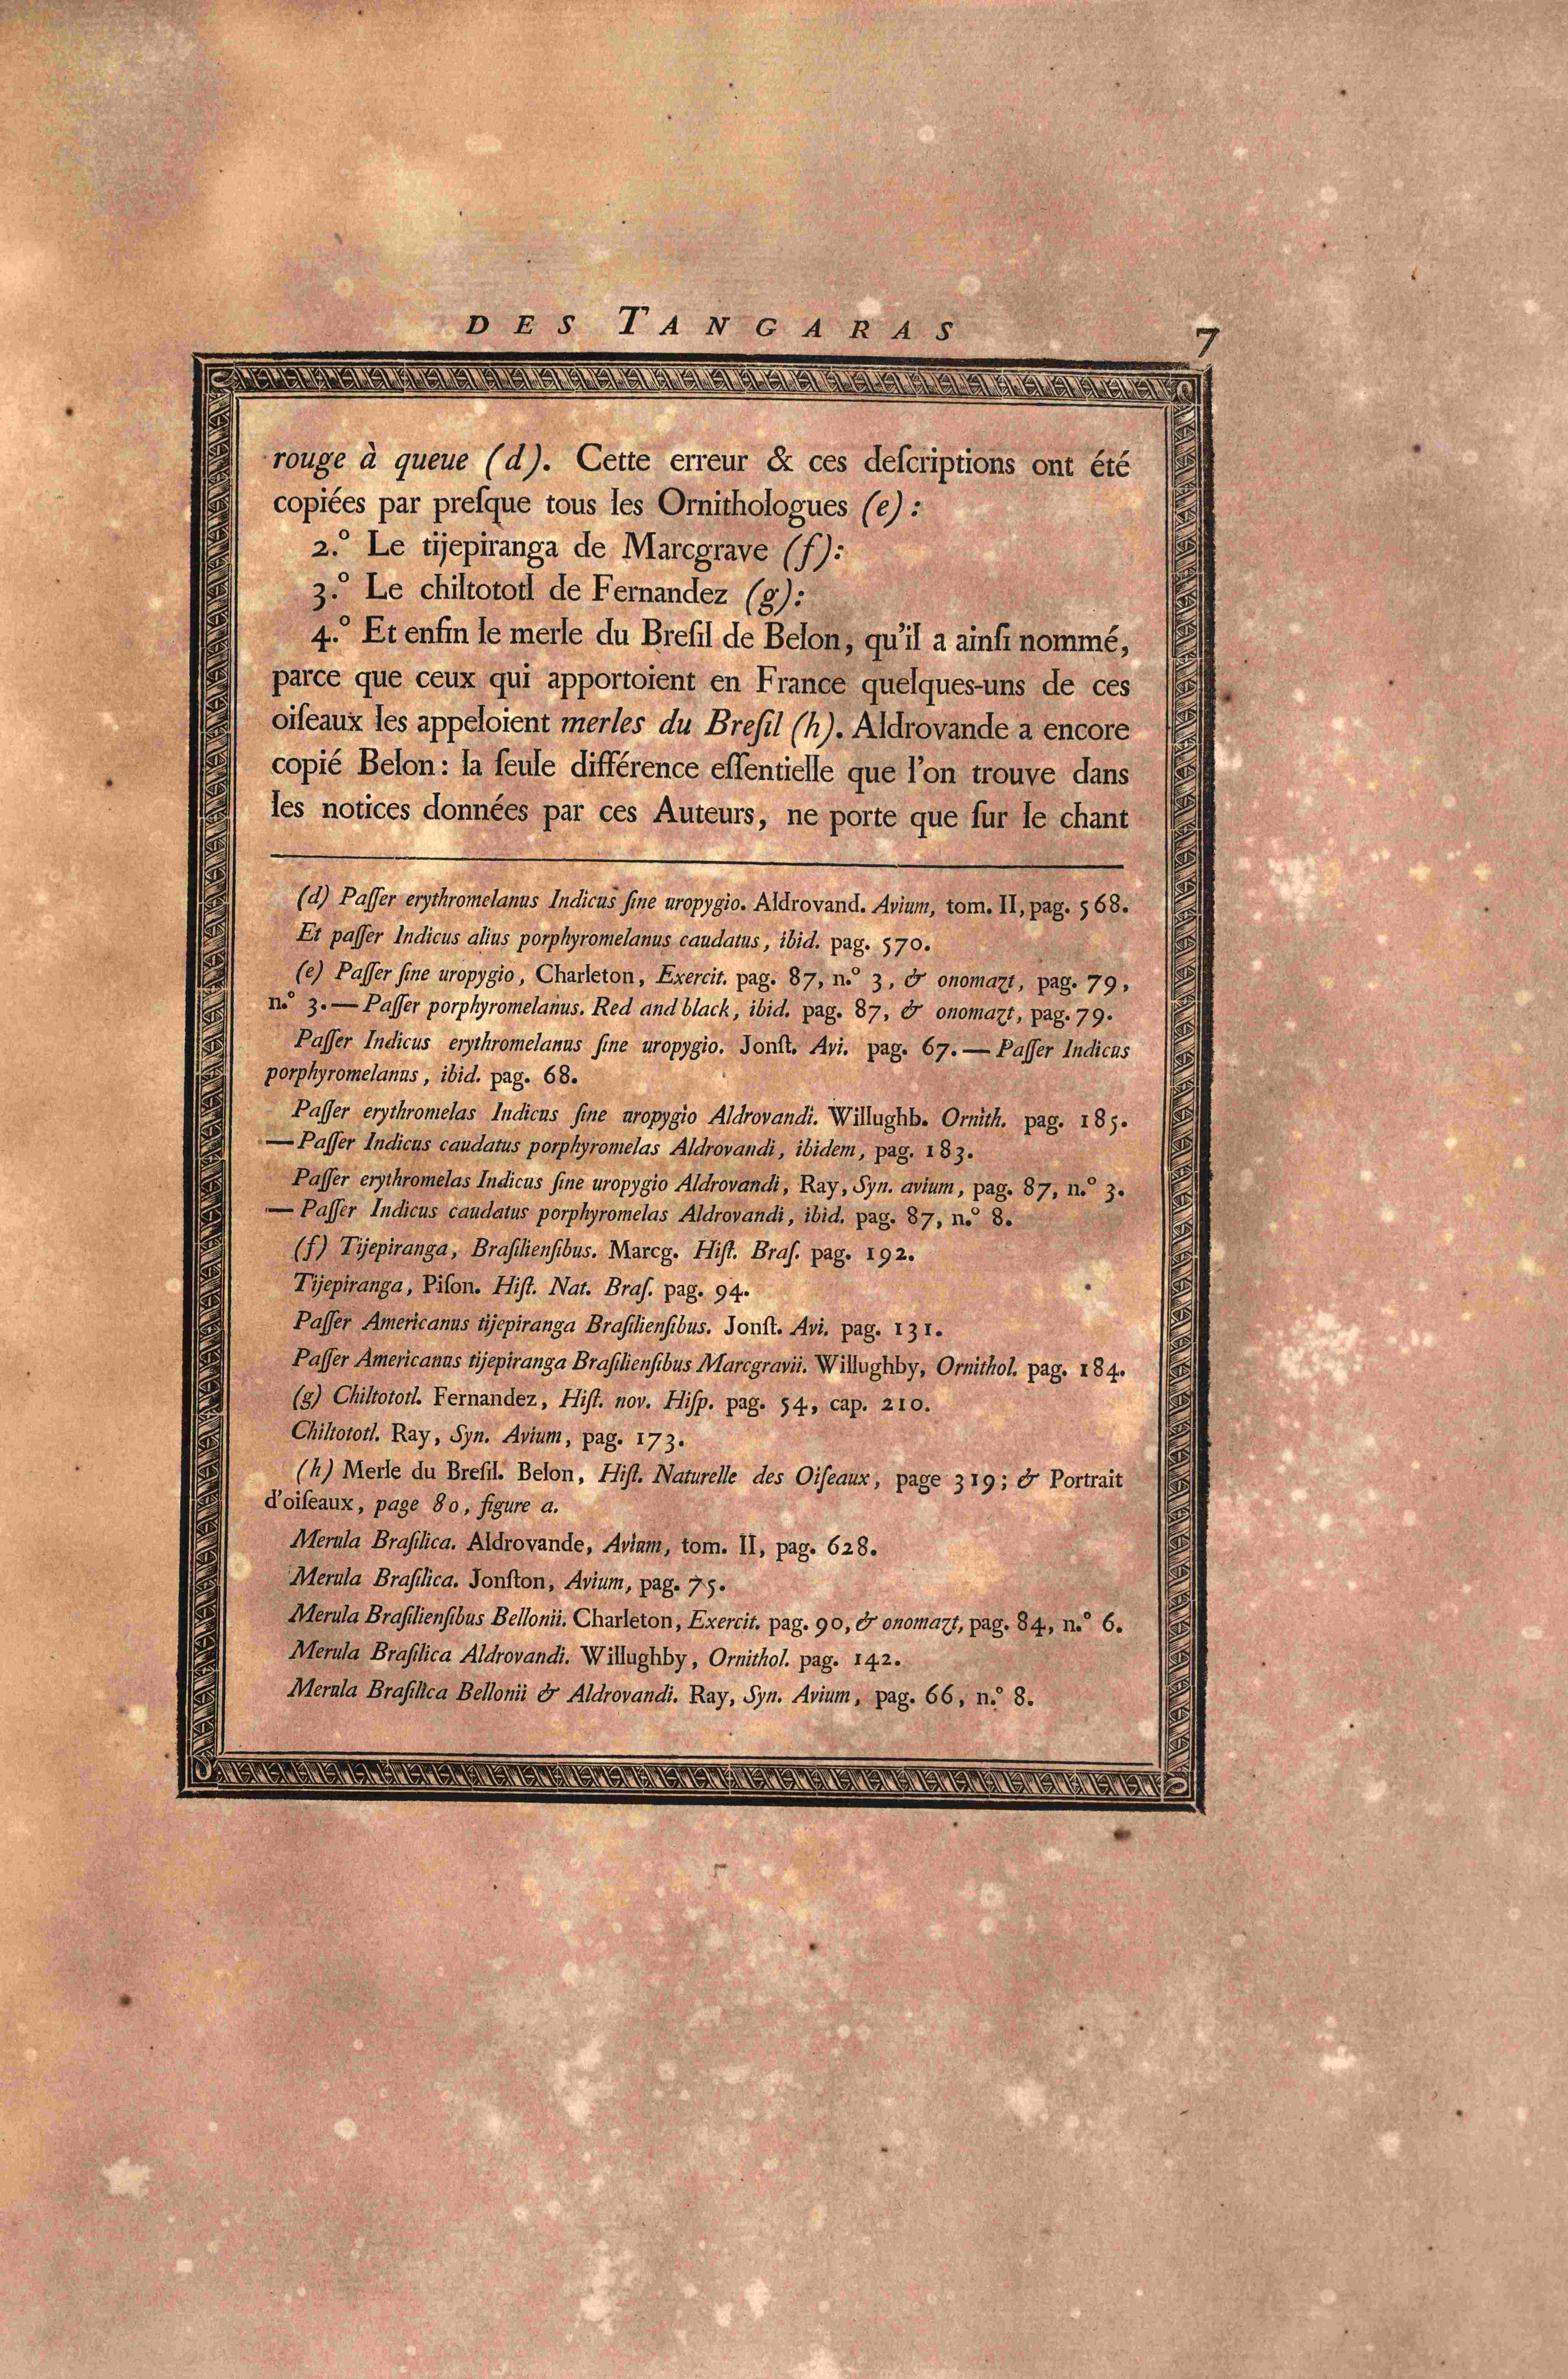 DES TANGARAS 7
rouge à queue (d). Cette erreur & ces deſcriptions ont été
copiées par preſque tous les Ornithologues (e):
2.° Le tijepiranga de Marcgrave (f):
3.° Le chiltototl de Fernandez (g):
4.° Et enfin le merle du Breſil de Belon, qu'il a ainſi nommé,
parce que ceux qui apportoient en France quelques-uns de ces
oiſeaux les appeloient merles du Breſil (h). Aldrovande a encore
copié Belon: la ſeule différence eſſentielle que l'on trouve dans
les notices données par ces Auteurs, ne porte que ſur le chant
(d) Paſſer erythromelanus Indicus ſine uropygio. Aldrovand. Avium, tom. II, pag. 568.
Et paſſer Indicus alius porphyromelanus caudatus, ibid. pag. 570.
(e) Paſſer ſine uropygio, Charleton, Exercit. pag. 87, n.° 3, & onomazt, pag. 79,
n.° 3. — Paſſer porphyromelanus. Red and black, ibid. pag. 87, & onomazt, pag. 79.
Paſſer Indicus erythromelanus ſine uropygio. Jonſt. Avi. pag. 67. — Paſſer Indicus
porphyromelanus, ibid. pag. 68.
Paſſer erythromelas Indicus ſine uropygio Aldrovandi. Willughb. Ornith. pag. 185.
— Paſſer Indicus caudatus porphyromelas Aldrovandi, ibidem, pag. 183.
Paſſer erythromelas Indicus ſine uropygio Aldrovandi, Ray, Syn. avium, pag. 87, n.° 3.
— Paſſer Indicus caudatus porphyromelas Aldrovandi, ibid. pag. 87, n.° 8.
(f) Tijepiranga, Braſilienſibus. Marcg. Hiſt. Braſ. pag. 192.
Tijepiranga, Piſon. Hiſt. Nat. Braſ. pag. 94.
Paſſer Americanus tijepiranga Braſilienſibus. Jonſt. Avi. pag. 131.
Paſſer Americanus tijepiranga Braſilienſibus Marcgravii. Willughby, Ornithol. pag. 184.
(g) Chiltototl. Fernandez, Hiſt. nov. Hiſp. pag. 54, cap. 210.
Chiltototl. Ray, Syn. Avium, pag. 173.
(h) Merle du Breſil. Belon, Hiſt. Naturelle des Oiſeaux, page 319; & Portrait
d'oiſeaux, page 80, figure a.
Merula Braſilica. Aldrovande, Avium, tom. II, pag. 628.
Merula Braſilica. Jonſton, Avium, pag. 75.
Merula Braſilienſibus Bellonii. Charleton, Exercit. pag. 90, & onomazt, pag. 84, n.° 6.
Merula Braſilica Aldrovandi. Willughby, Ornithol. pag. 142.
Merula Braſilica Bellonii & Aldrovandi. Ray, Syn. Avium, pag. 66, n.° 8.